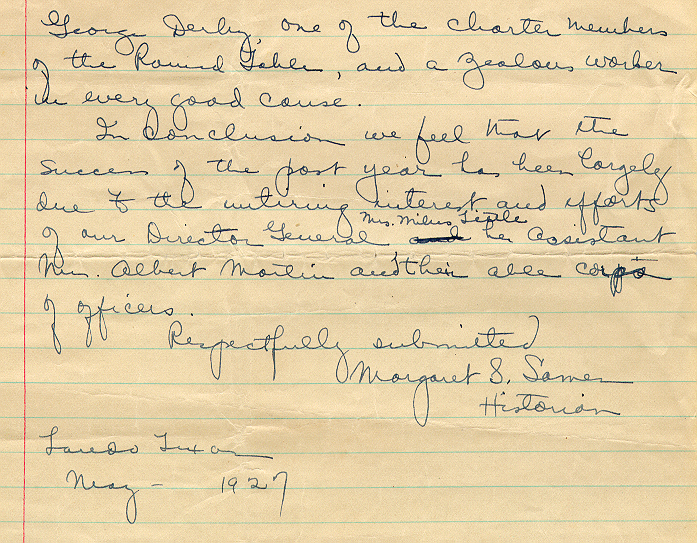 George Derby, one of the charter members
of the Round Table, and a zealous worker
in every good cause.
In conclusion we feel that the
success of the past year has been largely
due to the untiring interest and efforts
Mrs.
of our Director General her assistant
Mrs. Albert Martin and their able corps
of officers.
Respectfully submitted
Margaret S.
Historian
Laredo Texas
May - 1927